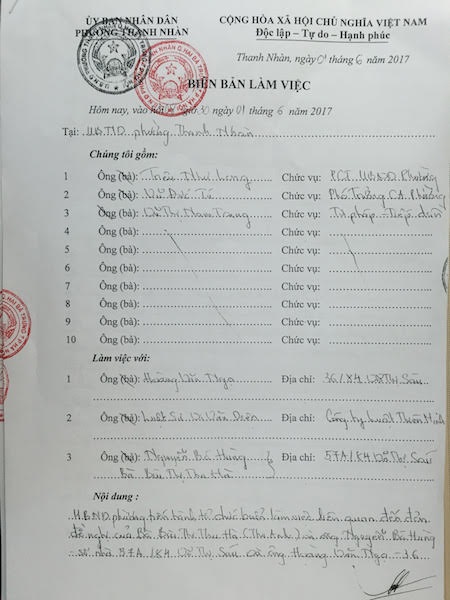 ỦY BAN NHÂN DÂN
PHƯỜNG THANH NHÀN
CỘNG HÒA XÃ HỘI CHỦ NGHĨA VIỆT NAM
Độc lập – Tự do – Hạnh phúc
Thanh Nhàn, ngày 01 tháng 6 năm 2017
BIÊN BẢN LÀM VIỆC
Hôm nay, vào hồi giờ 30 ngày 01 tháng 6 năm 2017
Tại: UBND phường Thanh Nhàn
Chúng tôi gồm:
1 Ông (bà): Trần Như Long Chức vụ: PCT UBND Phường
2 Ông (bà): Vũ Đức Tú Chức vụ: Phó Trưởng CA Phường
3 Ông (bà): Trang Chức vụ: Tư pháp -
4 Ông (bà): Chức vụ:
5 Ông (bà): Chức vụ:
6 Ông (bà): Chức vụ:
7 Ông (bà): Chức vụ:
8 Ông (bà): Chức vụ:
9 Ông (bà): Chức vụ:
10 Ông (bà): Chức vụ:
Làm việc với:
1 Ông (bà): Hoàng Văn Nga Địa chỉ: 36/84 Võ Thị Sáu
2 Ông (bà): Luật Sư Địa chỉ: Công ty Luật Thiên Minh
3 Ông (bà): Nguyễn Bá Hùng Địa chỉ: 57A/84 Võ Thị Sáu
Bà Bùi Thị Thu Hà
Nội dung :
UBND phường tiến hành tổ chức buổi làm việc liên quan đến đơn
đề nghị của Bà Bùi Thị Thu Hà và ông Nguyễn Bá Hùng
số nhà 57A/84 Võ Thị Sáu và ông Hoàng Văn Nga - 36